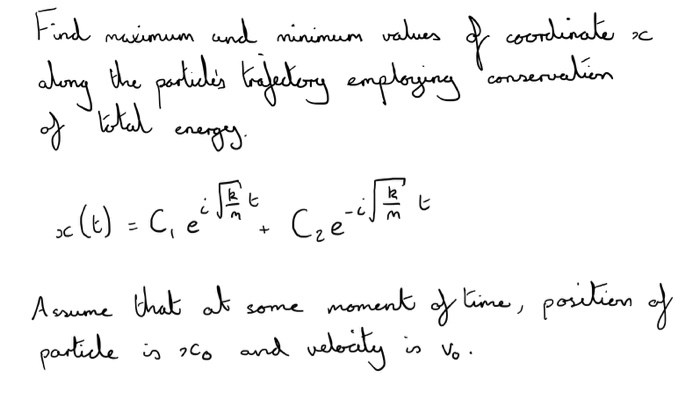 Find maximum and minimum values of coordinate x
along the particle's trajectory employing conservation
of total energy.
x(t) = C₁ e^{i√(k/m) t} + C₂ e^{-i√(k/m) t}
Assume that at some moment of time, position of
particle is x₀ and velocity is v₀.